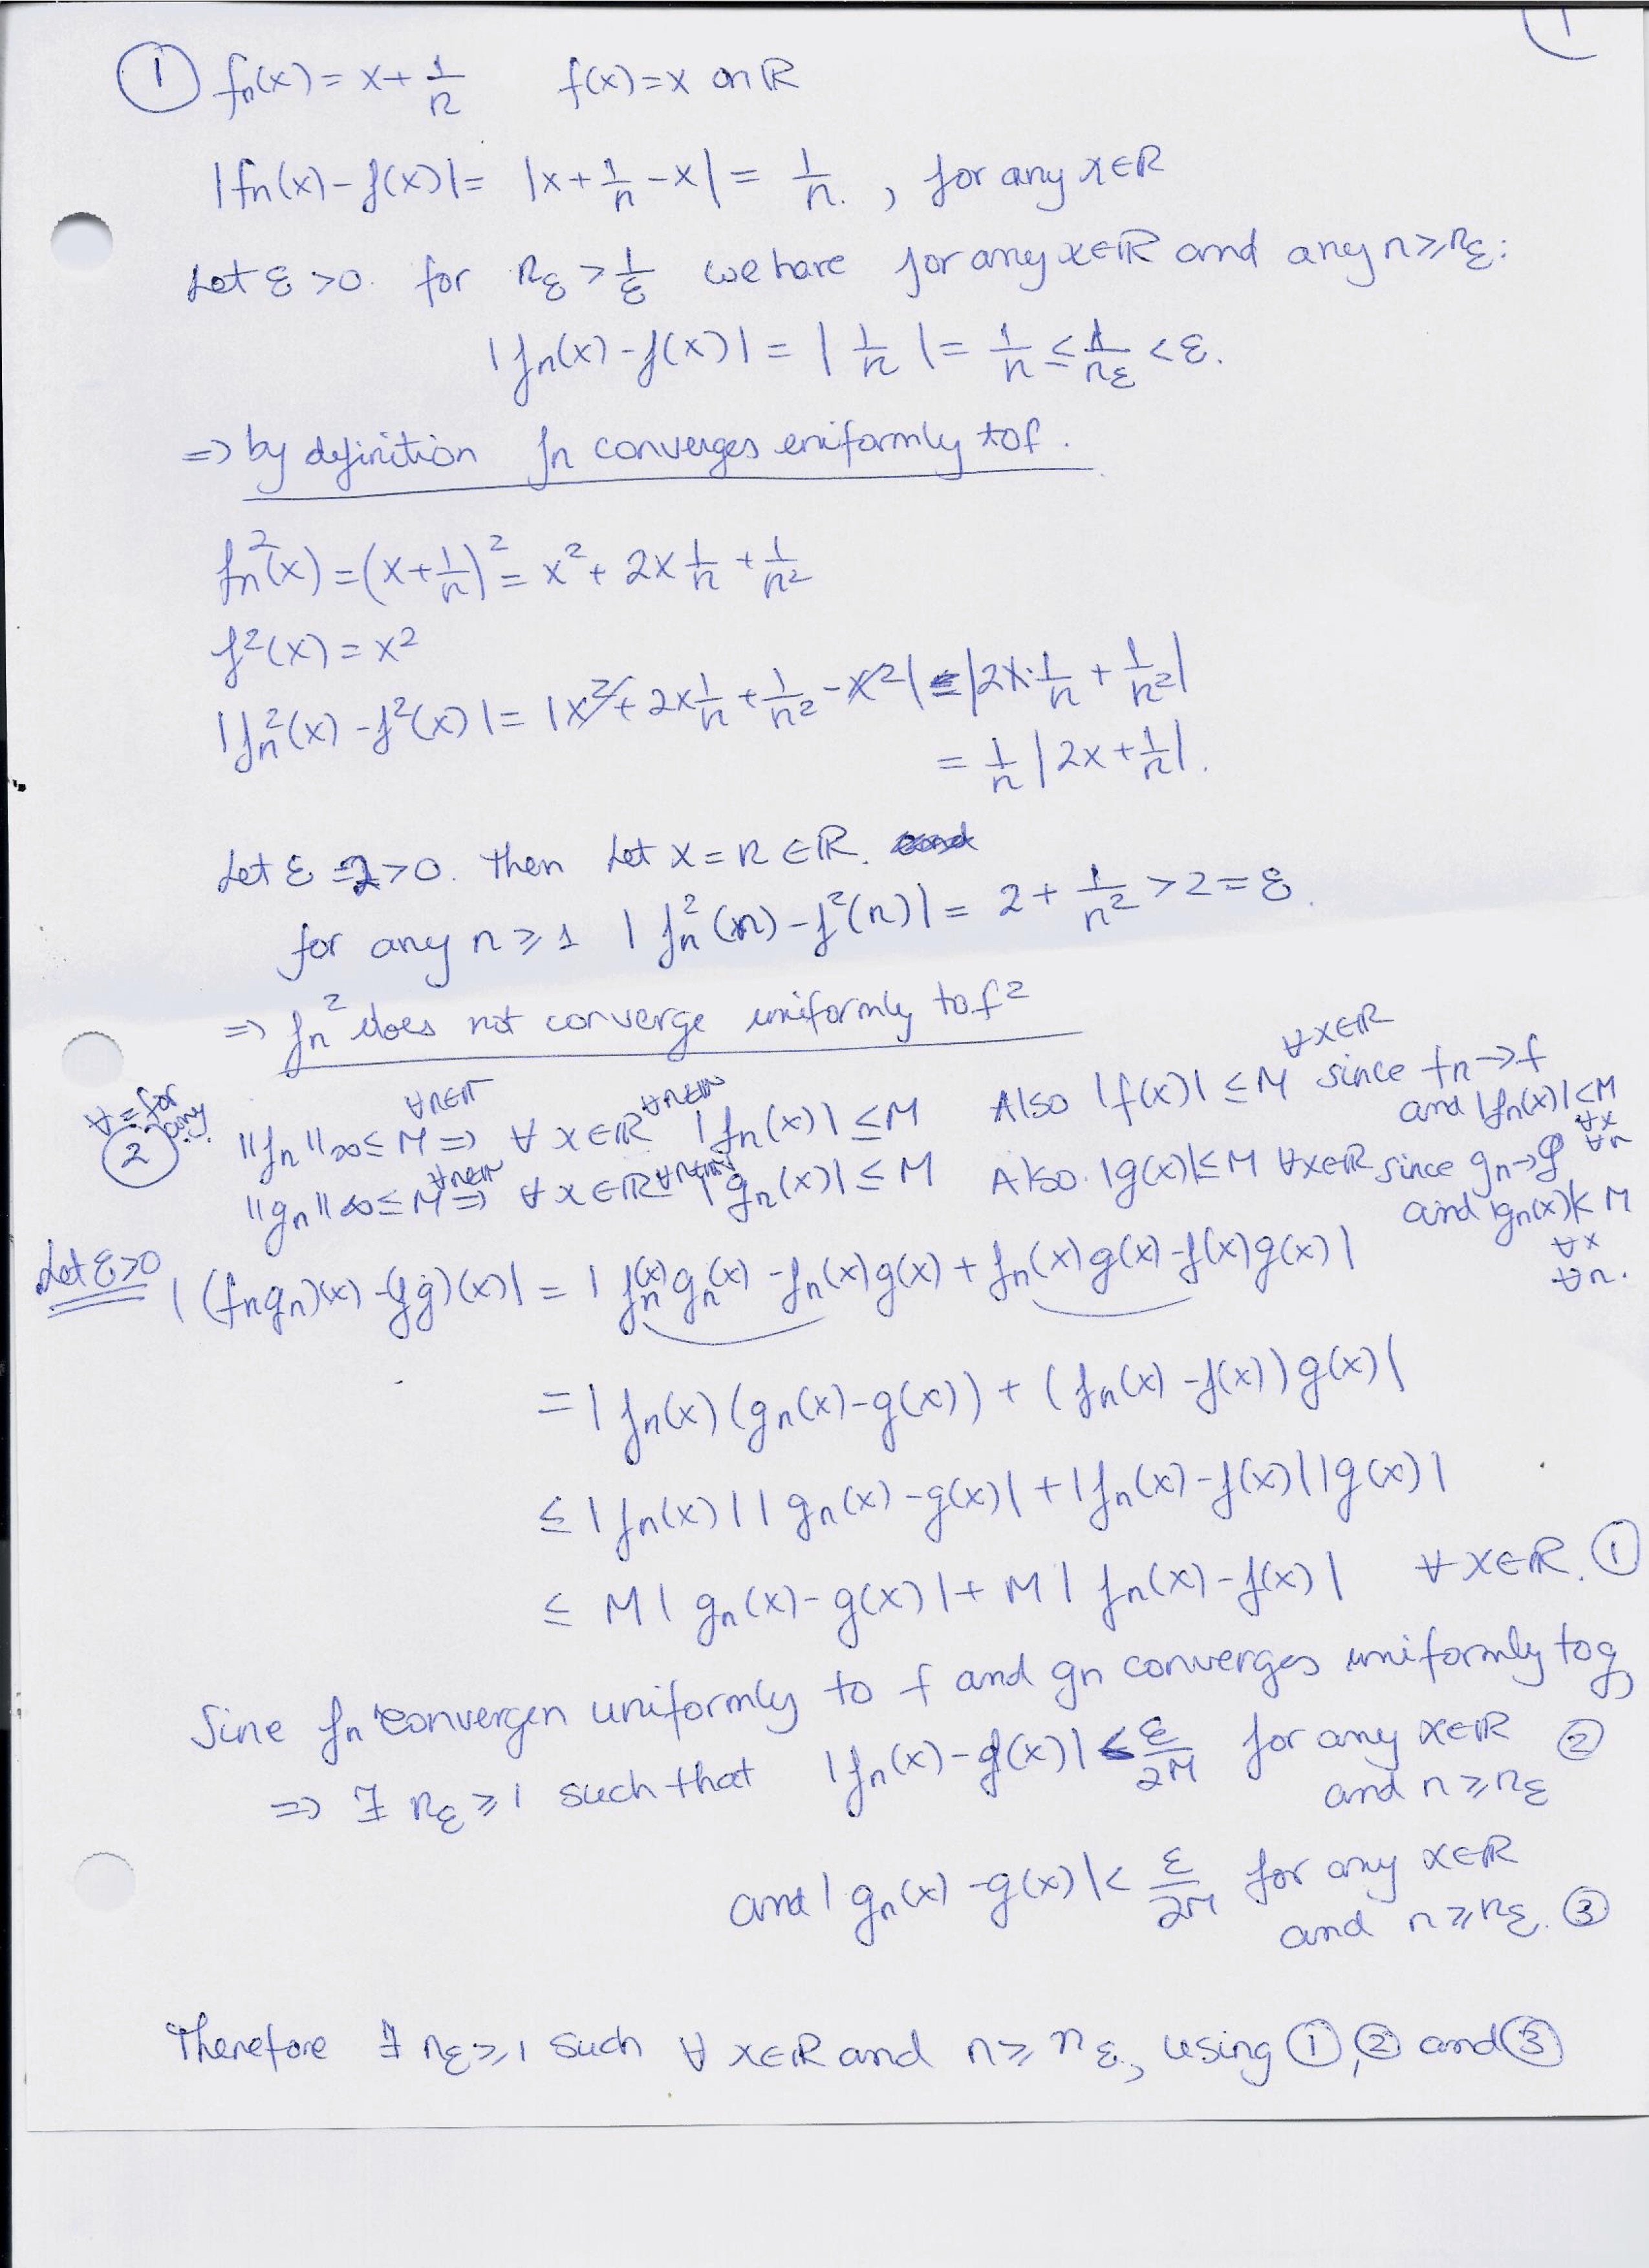 1
① fₙ(x) = x + 1/n f(x) = x on ℝ
|fₙ(x) - f(x)| = |x + 1/n - x| = 1/n. , for any x∈ℝ
Let ε > 0. for n_ε > 1/ε we have for any x∈ℝ and any n ≥ n_ε:
|fₙ(x) - f(x)| = |1/n| = 1/n ≤ 1/n_ε < ε.
⇒ by definition fₙ converges uniformly to f.
fₙ²(x) = (x + 1/n)² = x² + 2x 1/n + 1/n²
f²(x) = x²
|fₙ²(x) - f²(x)| = |x² + 2x 1/n + 1/n² - x²| = |2x·1/n + 1/n²|
= 1/n |2x + 1/n|.
Let ε = 2 > 0. Then Let x = n ∈ ℝ.
for any n ≥ 1 |fₙ²(n) - f²(n)| = 2 + 1/n² > 2 = ε.
⇒ fₙ² does not converge uniformly to f²
∀ = for any
② ‖fₙ‖∞ ≤ M ∀n∈ℕ ⇒ ∀ x∈ℝ ∀n∈ℕ |fₙ(x)| ≤ M Also |f(x)| ≤ M ∀x∈ℝ since fₙ → f and |fₙ(x)| ≤ M ∀x ∀n
‖gₙ‖∞ ≤ M ∀n∈ℕ ⇒ ∀ x∈ℝ ∀n∈ℕ |gₙ(x)| ≤ M Also. |g(x)| ≤ M ∀x∈ℝ since gₙ → g and |gₙ(x)| ≤ M ∀x ∀n.
Let ε>0 |(fₙgₙ)(x) - (fg)(x)| = |fₙ(x)gₙ(x) - fₙ(x)g(x) + fₙ(x)g(x) - f(x)g(x)|
= |fₙ(x)(gₙ(x) - g(x)) + (fₙ(x) - f(x))g(x)|
≤ |fₙ(x)||gₙ(x) - g(x)| + |fₙ(x) - f(x)||g(x)|
≤ M|gₙ(x) - g(x)| + M|fₙ(x) - f(x)| ∀ x∈ℝ. ①
Sine fₙ convergen uniformly to f and gn converges uniformly to g,
⇒ ∃ n_ε ≥ 1 such that |fₙ(x) - f(x)| < ε/2M for any x∈ℝ ②
and n ≥ n_ε
and |gₙ(x) - g(x)| < ε/2M for any x∈ℝ
and n ≥ n_ε. ③
Therefore ∃ n_ε ≥ 1 such ∀ x∈ℝ and n ≥ n_ε, using ①, ② and ③